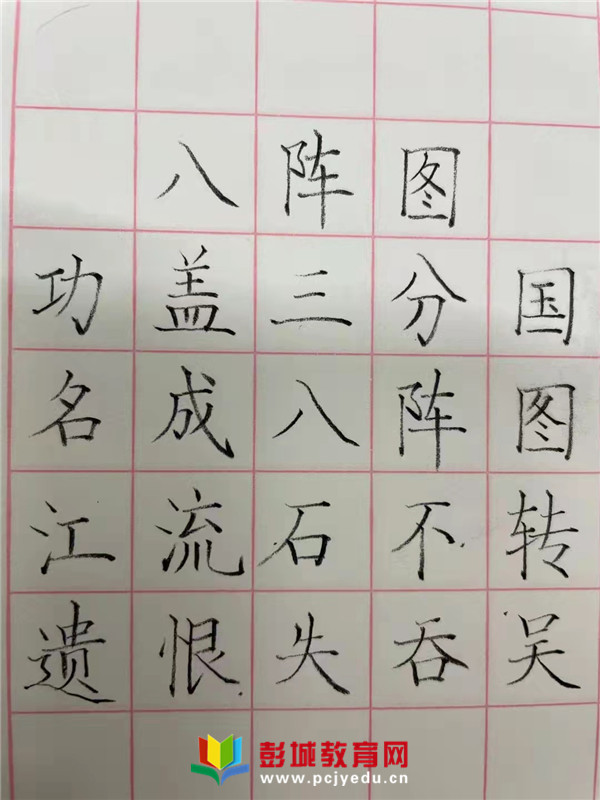 八阵图
功盖三分国
名成八阵图
江流石不转
遗恨失吞吴
彭城教育网
www.pcjyedu.cn